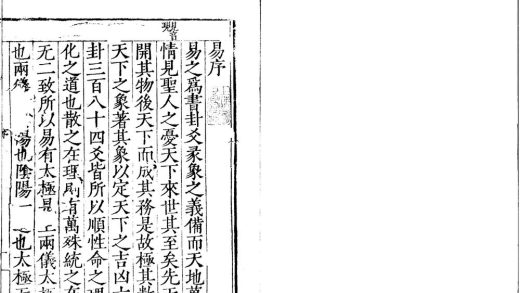 易序
易之爲書卦爻彖象之義備而天地萬
情見聖人之憂天下來世其至矣先天
開其物後天下而成其務是故極其數
天下之象著其象以定天下之吉凶六
卦三百八十四爻皆所以順性命之理
化之道也散之在理則有萬殊統之在
无二致所以易有太極是 兩儀太
也兩儀 陽也陰陽一 也太極无